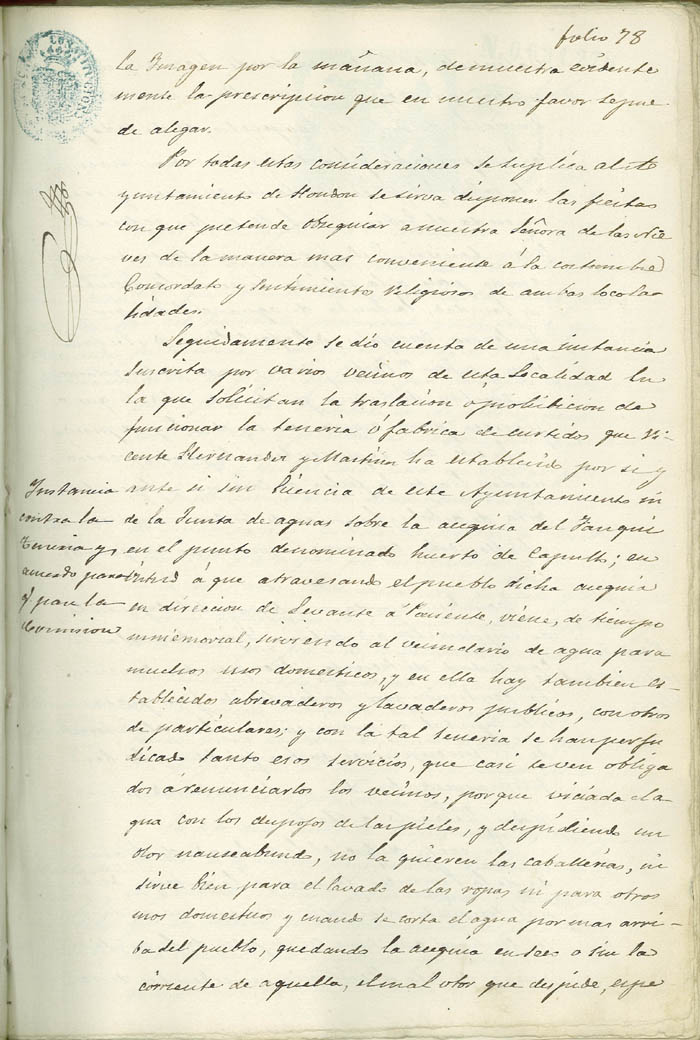 folio 78
la Imagen por la mañana, demuestra evidente
mente la prescripcion que en nuestro favor se pue
de alegar.
Por todas estas consideraciones se suplica al
yuntamiento de Hondon se sirva disponer las fiestas
con que pretende obsequiar a nuestra Señora de las Nie
ves de la manera mas conveniente á la costumbre
Concordato y sentimientos religiosos de ambas locali
tidades.
Seguidamente se dió cuenta de una instancia
suscrita por varios vecinos de esta localidad en
la que solicitan la traslacion ó prohibicion de
funcionar la teneria ó fabrica de curtidos que Vi-
cente Hernandez y Martinez ha establecido por si y
ante si sin licencia de este Ayuntamiento ni
de la Junta de aguas sobre la acequia del Fauqui
en el punto denominado huerto de Capulls; en
á que atravesando el pueblo dicha acequia
en direcion de Levante á Poniente, viene, de tiempo
inmemorial, sirviendo al vecindario de agua para
muchos usos domesticos, y en ella hay tambien es-
tablecidos abrevaderos y lavaderos publicos, con otros
de particulares; y con la tal teneria se han perju
dicado tanto esos servicios, que casi se ven obliga
dos á renunciarlos los vecinos, porque viciada el a-
gua con los despojos de las pieles, y despidiendo un
olor nauseabundo, no la quieren las caballerias, ni
sirve bien para el lavado de las ropas ni para otros
usos domesticos y cuando se corta el agua por mas arri-
ba del pueblo, quedando la acequia en seco o sin la
corriente de aquella, el mal olor que despide, espe
Instancia
contra la
Teneria y
acuerdo para
q.e pase la
Comision